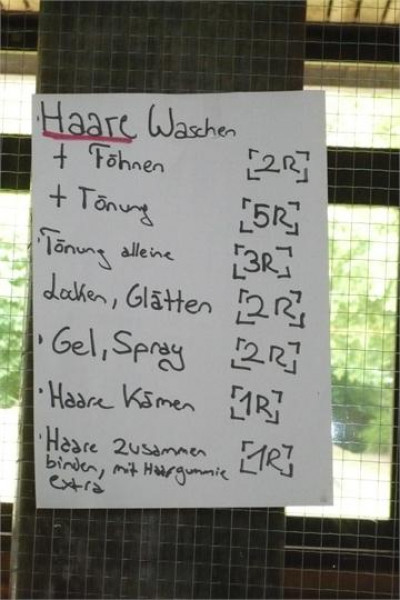 · Haare Waschen
+ Föhnen [2R]
+ Tönung [5R]
· Tönung alleine [3R]
Locken, Glätten [2R]
· Gel, Spray [2R]
· Haare Kämen [1R]
· Haare Zusammen [1R]
binden, mit Haargummie
extra